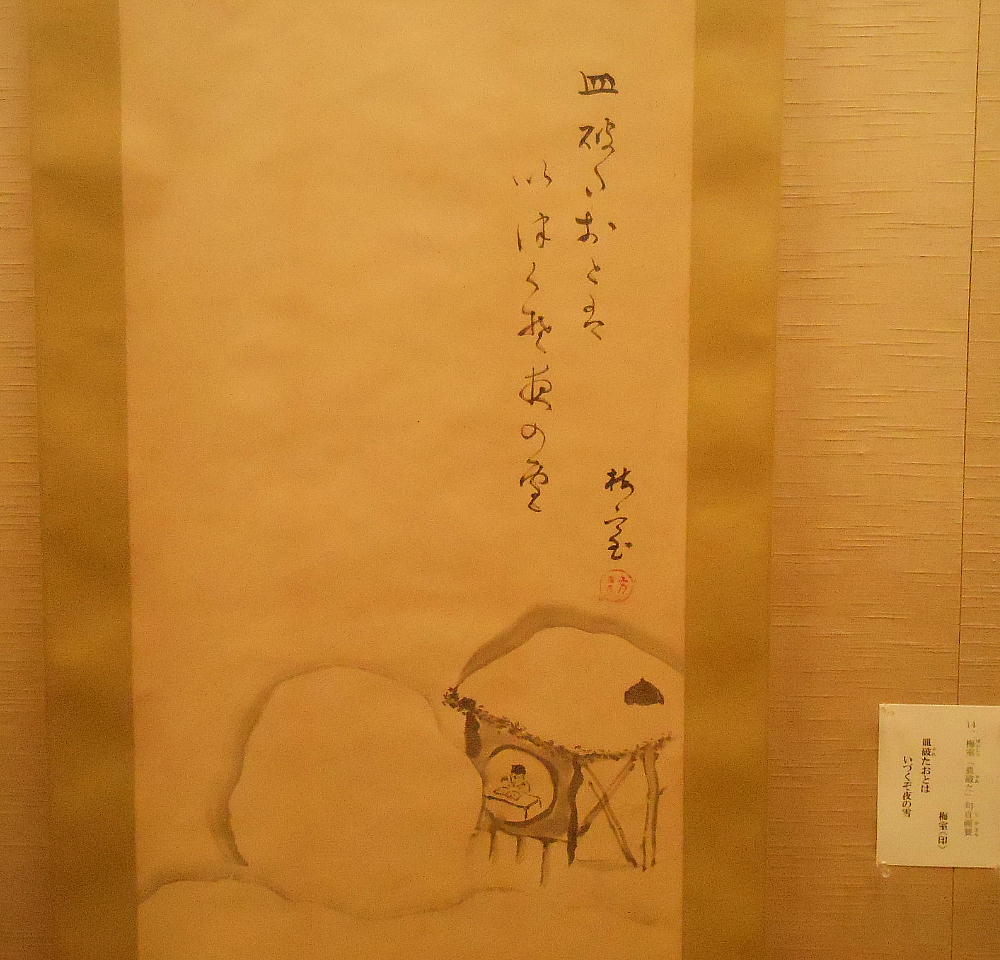 皿破たおとは
以津くそ夜の雪
梅室
14、梅室「皿破た」句自画賛
皿破たおとは
いづくぞ夜の雪
梅室(印)